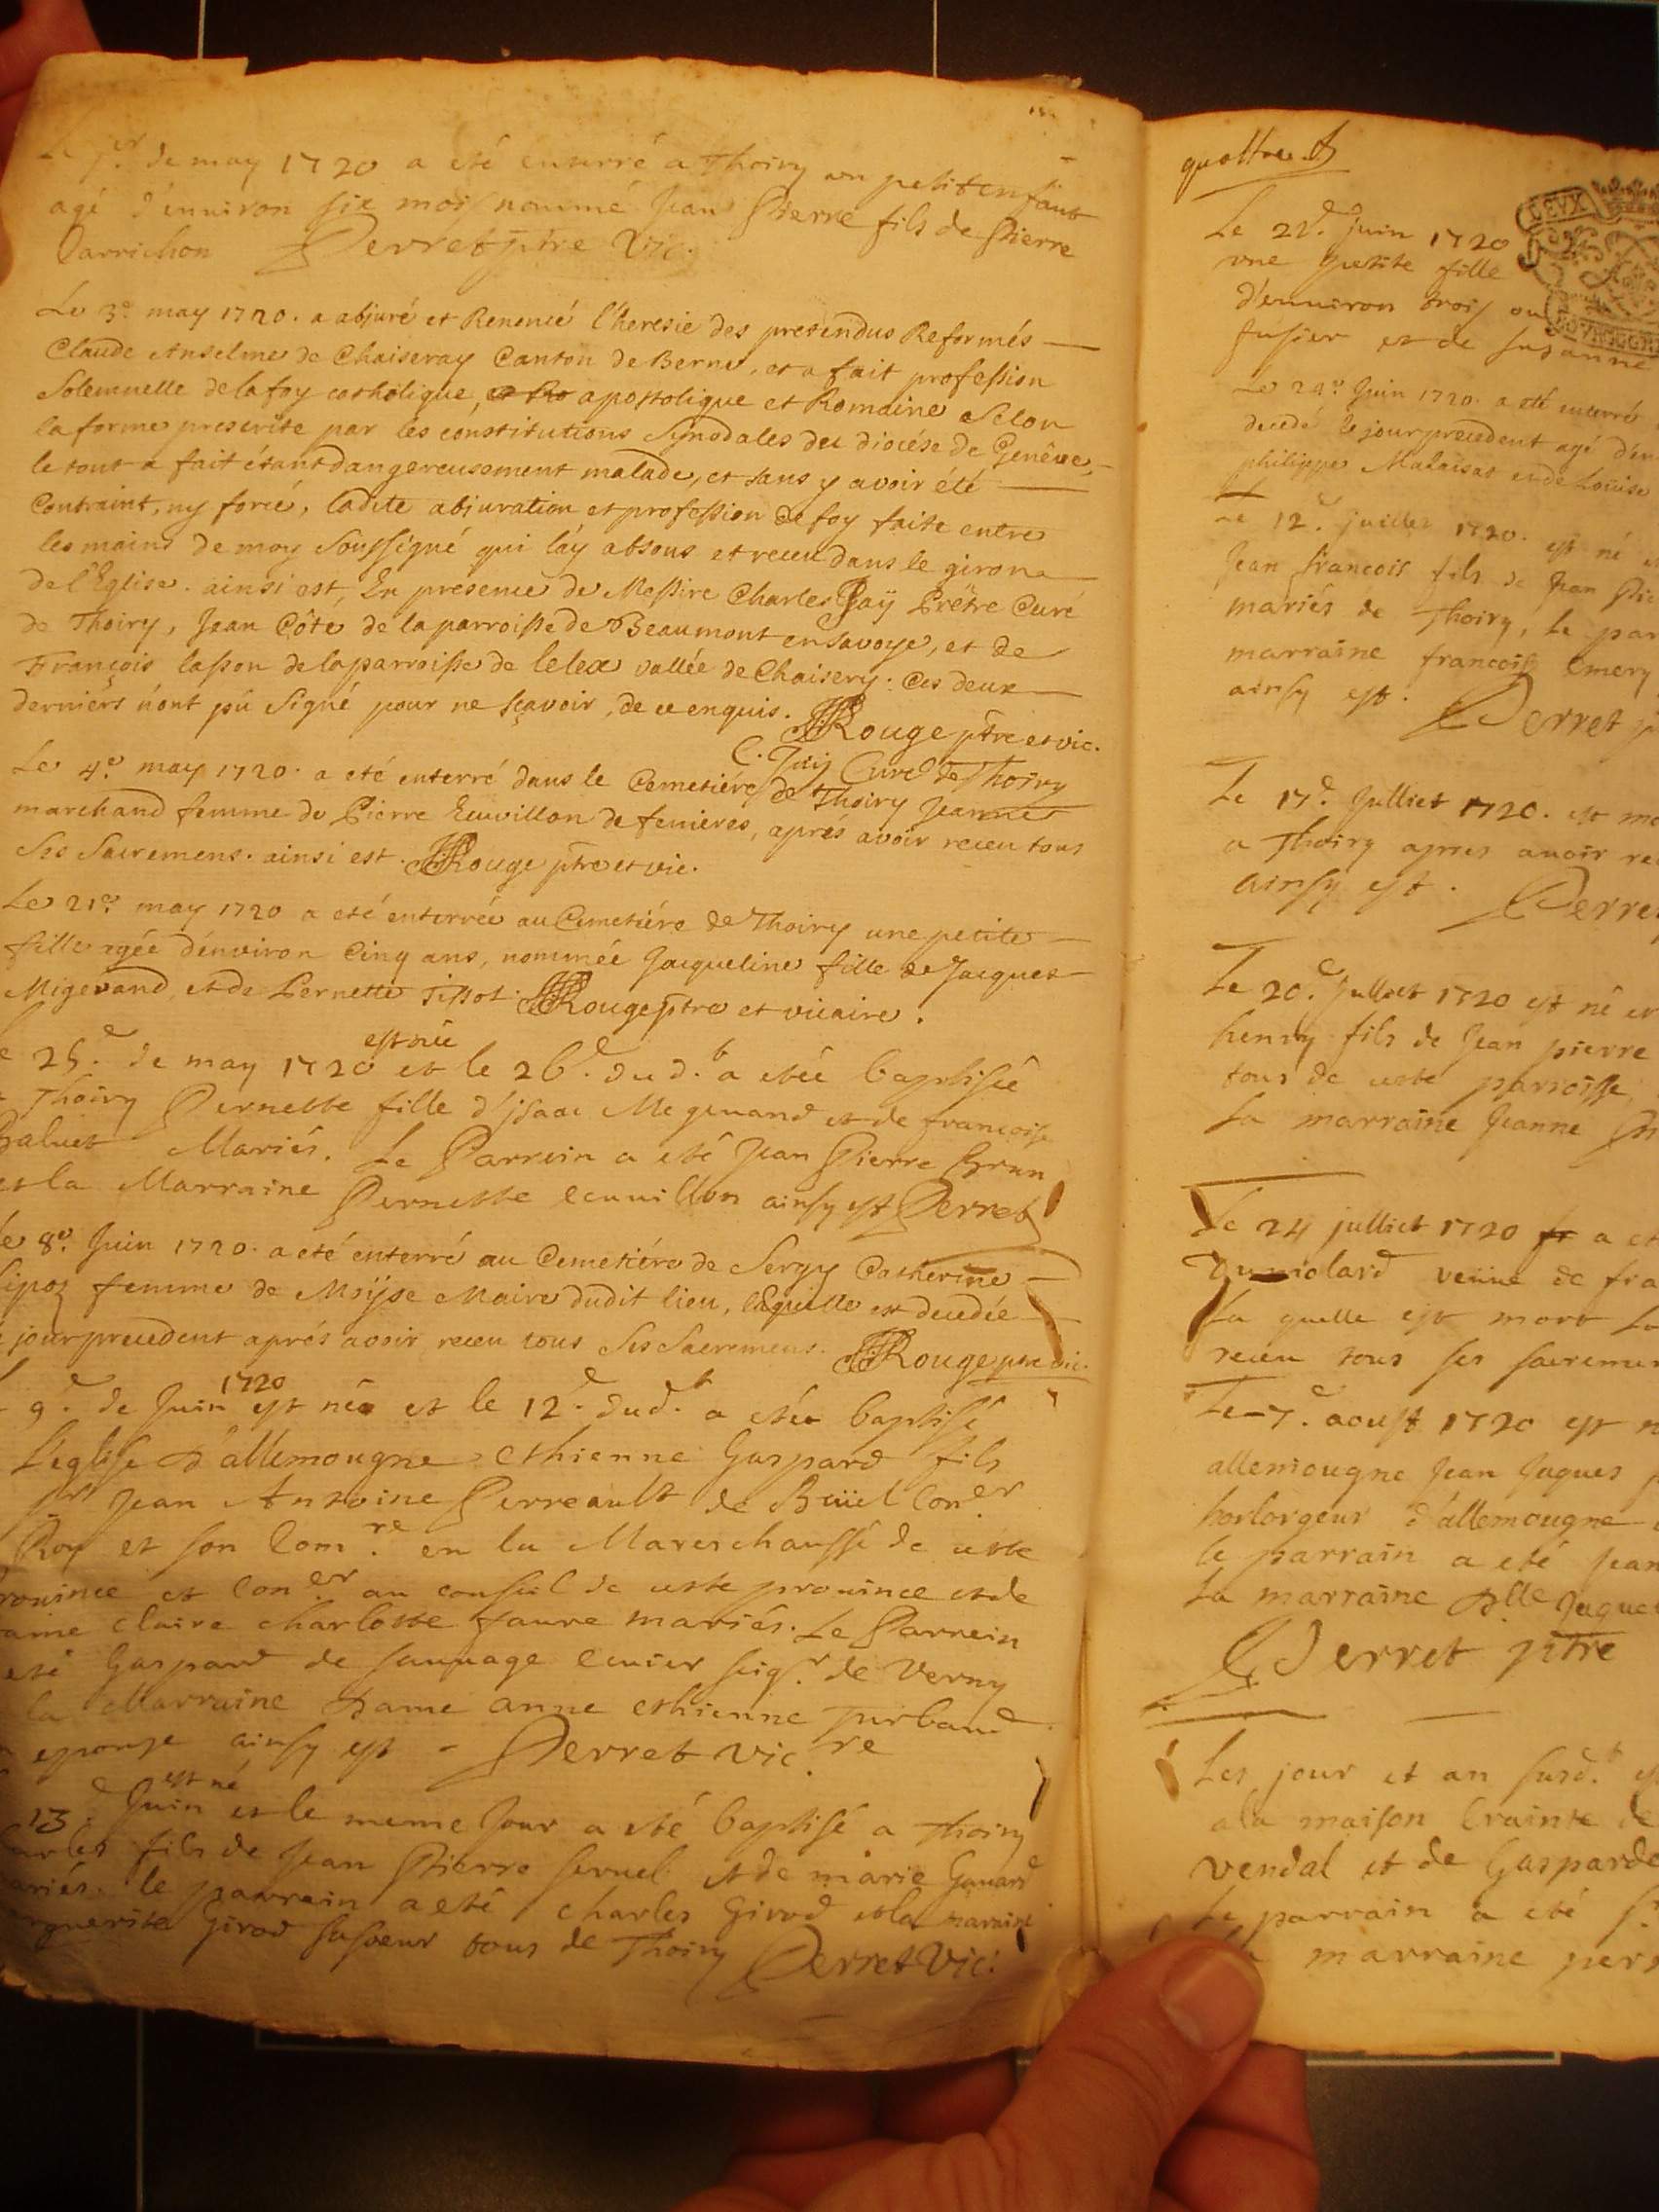 Le 1er. de may 1720 a eté enterré a Thoiry un petit enfant
agé d'enuiron six mois nommé Jean Pierre fils de Pierre
Perret ptre Vic.
Le 3e. may 1720. a abjuré et Renoncé l'heresie des pretendus Reformés
Claude Anselme de Chaiseray Canton de Berne, et a fait profession
Solemnelle de la foy catholique, apostolique et Romaine Selon
la forme prescrite par les constitutions Synodales du diocése de Genêve,
le tout a fait étant dangereusement malade, et sans y avoir été
Contraint, ny forcé, ladite abjuration et profession de foy faite entre
les mains de moy Soussigné qui l'ay absous et receu dans le giron
de l'Eglise. ainsi est, En presence de Messire Charles Gaÿ Prêtre Curé
de Thoiry, Jean Côte de la parroisse de Beaumont en Savoye, et de
François lasson de la parroisse de lelex vallée de Chaisery. Ces deux
derniérs n'ont pû Signé pour ne sçavoir, de ce enquis. Rouge ptre et vic.
Curé de Thoiry
Le 4e. may 1720. a eté enterré dans le Cemetiére de Thoiry Jeanne
marchand femme de Pierre Ecuvillon de fenieres, aprés avoir receu tous
Ses Sacremens. ainsi est. Rouge ptre et vic.
Le 21e. may 1720 a eté enterrée au Cemetiére de Thoiry une petite
fille agée d'environ Cinq ans, nommée Jacqueline fille de Jacques
Migevand, et de Pernette Tissot. Rouge ptre et vicaire.
est née
25.e de may 1720 et le 26.e dud.t a etée baptisée
Thoiry Pernette fille d'jsaac Megeuand et de francoise
Mariés. Le Parrein a eté Jean Pierre Brun
et la Marraine Pernette ecuuillon ainsy est Perret
8e. Juin 1720. a eté enterré au Cemetiére de Sergy Catherine
femme de Moÿse Maire dudit lieu, laquelle est decedée
jour precedent aprés avoir receu tous Ses Sacremens. Rouge ptre vic.
1720
9.e de Juin est né et le 12.e dud.t a eté baptisé
l'eglise d'allemougne ethienne Gaspard fils
Jean Antoine Perreault de Bruel Con.er
Roy et son Com.re en la Mareschaussé de cette
prouince et Con.er au conseil de cette prouince et de
Claire Charlotte faure mariés. Le Parrein
eté Gaspard de sauuage ecuier seig.r de Verny
la Marraine Dame anne ethienne Turbaud
espouse ainsy est - Perret Vic.re
est né
13.e Juin et le meme Jour a eté baptisé a Thoiry
fils de Jean Pierre et de marie
mariés. le parrein a eté Charles Girod et la maraine
Girod sa soeur tous de Thoiry Perret Vic.
quattre
Le 22.e Juin 1720
une petite fille
d'enuiron trois ou
fusier et de susanne
Le 24e. Juin 1720. a eté enterré
decedé le jour precedent agé d'en
philippe et de Louise
Le 12.e juillet 1720. est né e
Jean francois fils de Jean Pie
mariés de Thoiry, le par
marraine francoise emery
ainsy est. Perret
Le 17.e Julliet 1720. est mo
a Thoiry apres auoir re
ainsy est. Perret
Le 20.e Julliet 1720 est né et
henry fils de Jean pierre
tous de cette parroisse
La marraine Jeanne
Le 24 julliet 1720 a et
veuue de fra
La quelle est mort
receu tous ses sacremen
Le 7.e aoust 1720 est n
allemougne Jean Jaques
horlorgeur d'allemougne
le parrain a eté Jean
La marraine Dlle Jaque
Perret ptre
Les jour et an susd.t
a la maison de
Vendal et de Gasparde
Le parrain a eté s.r
marraine